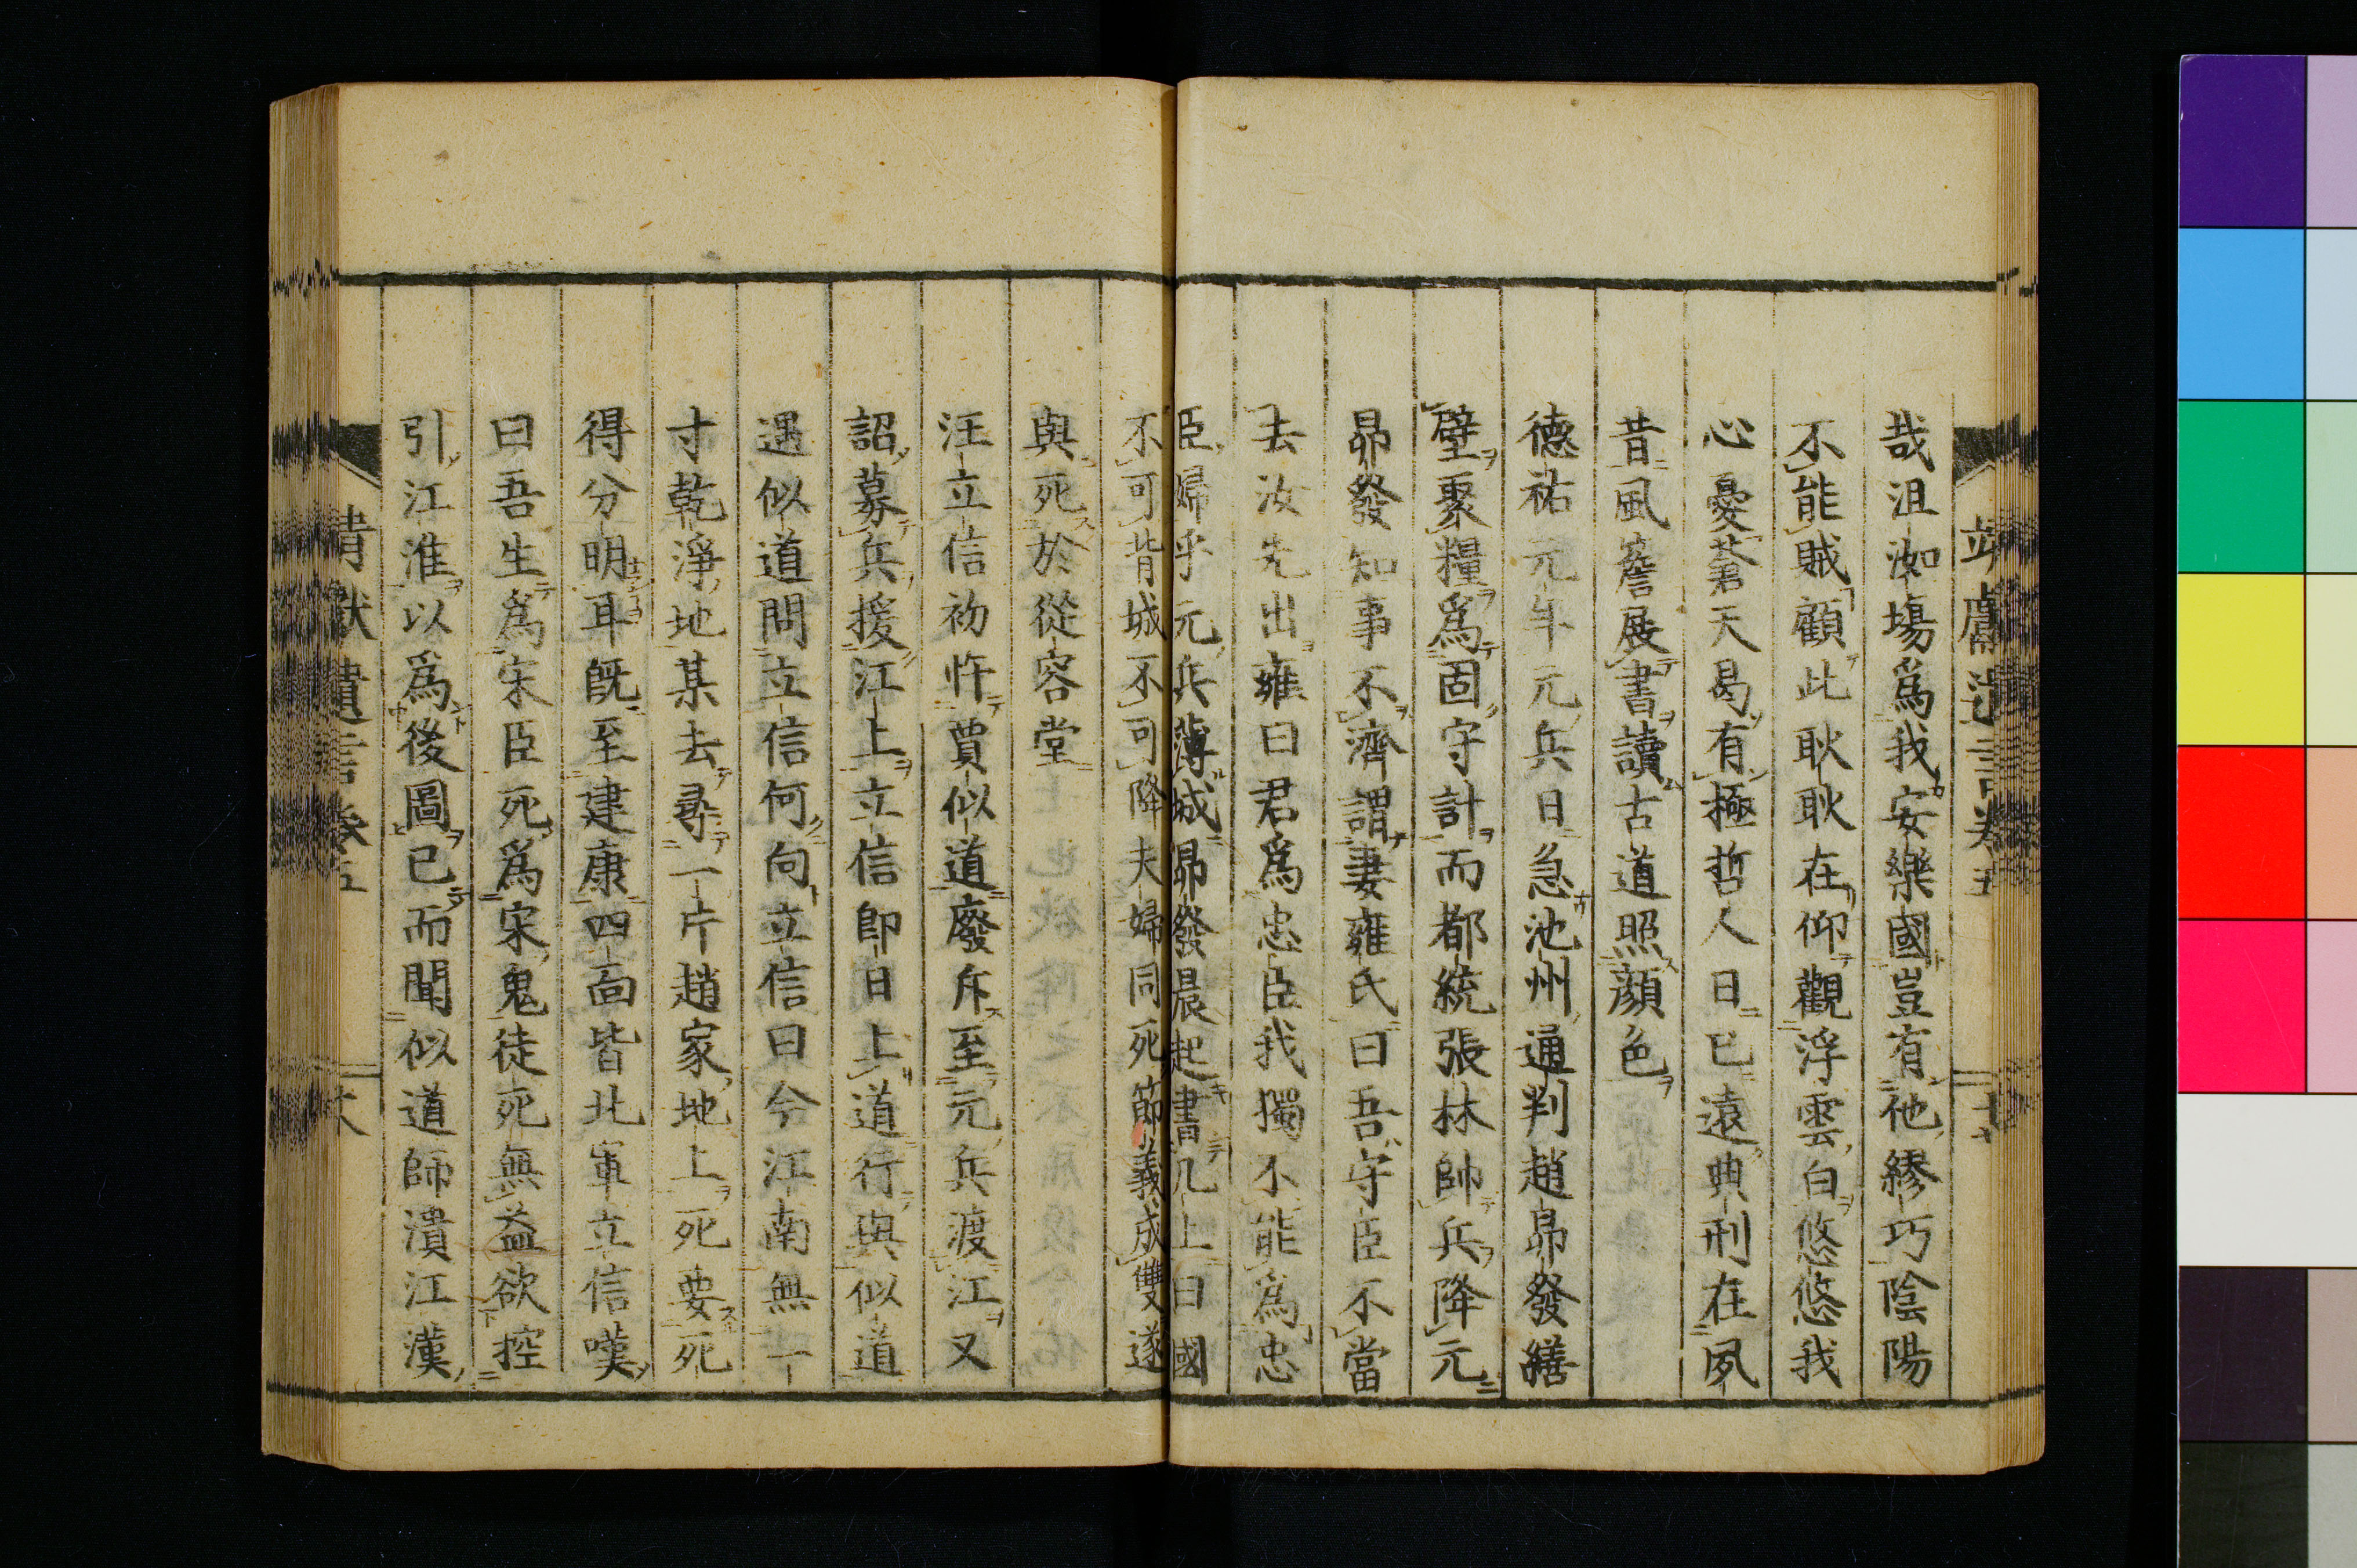 哉沮洳場爲我安樂國豈有他繆巧陰陽
不能賊顧此耿耿在仰觀浮雲白悠悠我
心憂蒼天曷有極哲人日已遠典刑在夙
昔風簷展書讀古道照顔色
德祐元年元兵日急池州通判趙昴發繕
壁聚糧爲固守計而都統張林帥兵降元
昴發知事不濟謂妻雍氏曰吾守臣不當
去汝先出雍曰君爲忠臣我獨不能爲忠
臣婦乎元兵薄城昴發晨起書几上曰國
不可背城不可降夫婦同死節義成雙遂
與死於從容堂
汪立信初忤賈似道廢斥至元兵渡江又
詔募兵援江上立信即日上道行與似道
遇似道問立信何向立信曰今江南無一
寸乾淨地某去尋一片趙家地上死要死
得分明耳既至建康四面皆北軍立信嘆
曰吾生爲宋臣死爲宋鬼徒死無益欲控
引江淮以爲後圖已而聞似道師潰江漢